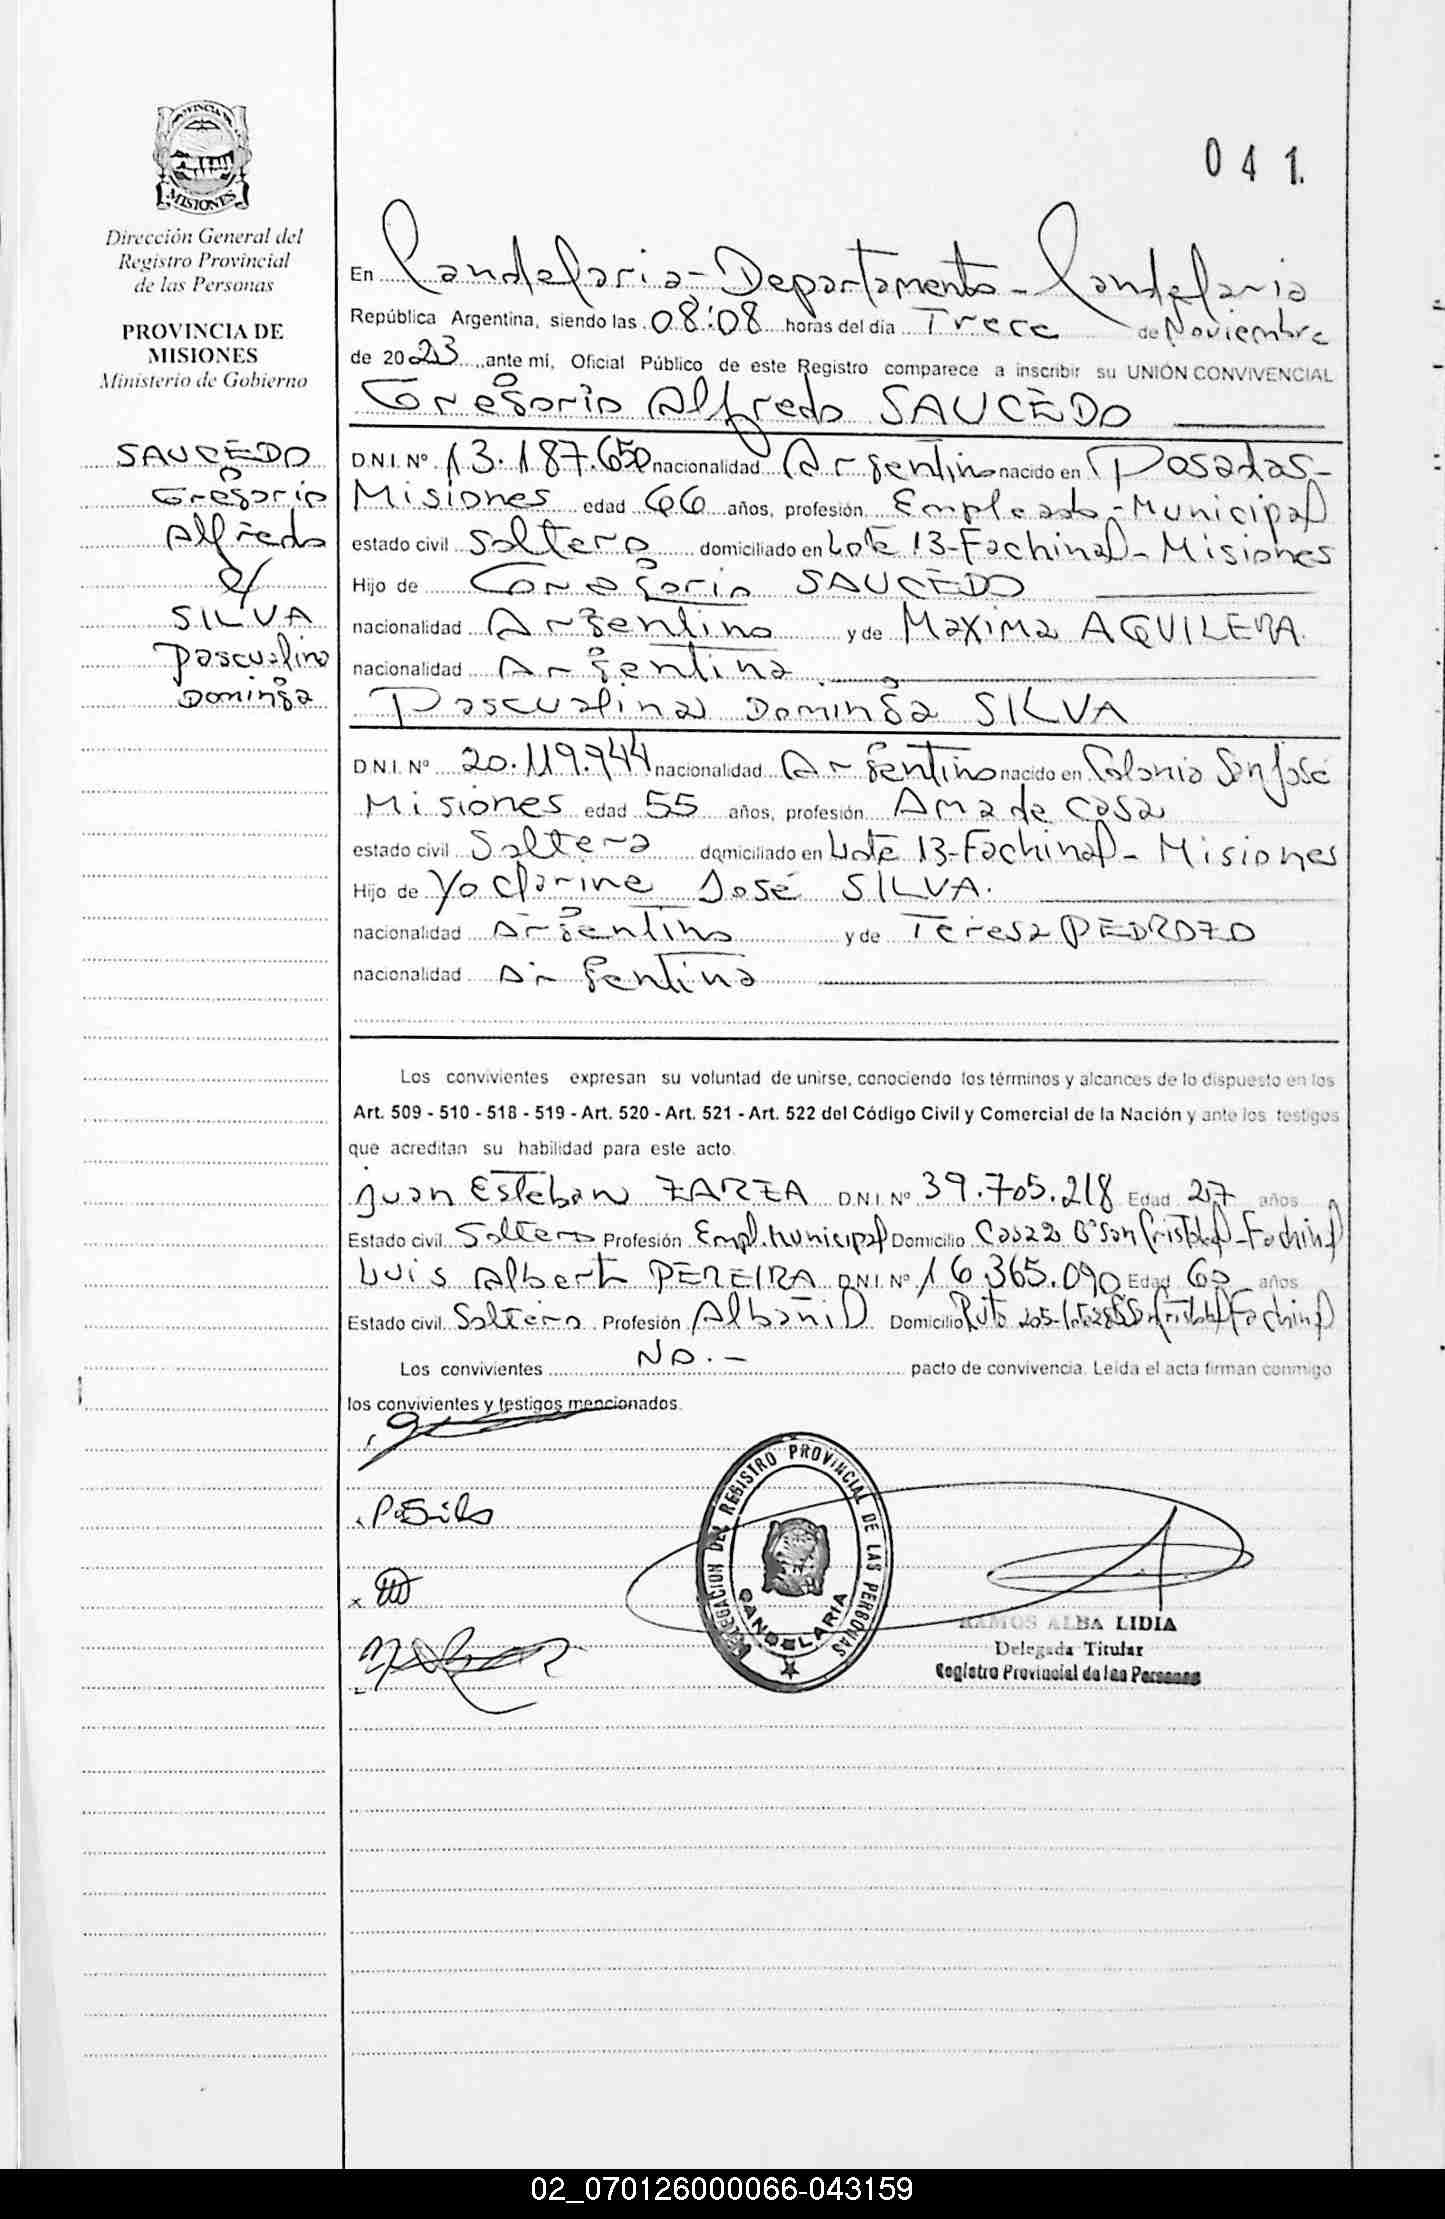 041.
PROVINCIA DE
MISIONES
Dirección General del
Registro Provincial
de las Personas
PROVINCIA DE
MISIONES
Ministerio de Gobierno
SAUCEDO
Gregorio
Alfredo
c/
SILVA
Pascualina
Dominga
En Candelaria-Departamento-Candelaria
República Argentina, siendo las 08:08 horas del día Trece de Noviembre
de 2023 ante mí, Oficial Público de este Registro comparece a inscribir su UNIÓN CONVIVENCIAL
Gregorio Alfredo SAUCEDO
D.N.I. Nº 13.187.650 nacionalidad Argentino nacido en Posadas-
Misiones edad 66 años, profesión Empleado-Municipal
estado civil Soltero domiciliado en Lote 13-Fachinal-Misiones
Hijo de Gregorio SAUCEDO
nacionalidad Argentino y de Maxima AQUILERA.
nacionalidad Argentina
Pascualina Dominga SILVA
D.N.I. Nº 20.119.944 nacionalidad Argentino nacido en Colonia San José
Misiones edad 55 años, profesión Ama de casa
estado civil Soltera domiciliado en Lote 13-Fachinal-Misiones
Hijo de José SILVA.
nacionalidad Argentino y de Teresa PEDROZO
nacionalidad Argentina
Los convivientes expresan su voluntad de unirse, conociendo los términos y alcances de lo dispuesto en los
Art. 509 - 510 - 518 - 519 - Art. 520 - Art. 521 - Art. 522 del Código Civil y Comercial de la Nación y ante los testigos
que acreditan su habilidad para este acto.
Juan Esteban ZARZA D.N.I. Nº 39.705.218 Edad 27 años
Estado civil Soltero Profesión Empl. Municipal Domicilio Casa 2 Bº San Cristobal-Fachinal
Luis Alberto PEREIRA D.N.I. Nº 16.365.090 Edad 60 años
Estado civil Soltero Profesión Albañil Domicilio Ruta 205 San Cristobal Fachinal
Los convivientes No.- pacto de convivencia. Leída el acta firman conmigo
los convivientes y testigos mencionados.
P. Silva
DELEGACION DEL REGISTRO PROVINCIAL DE LAS PERSONAS
CANDELARIA
RAMOS ALBA LIDIA
Delegada Titular
Registro Provincial de las Personas
02_070126000066-043159